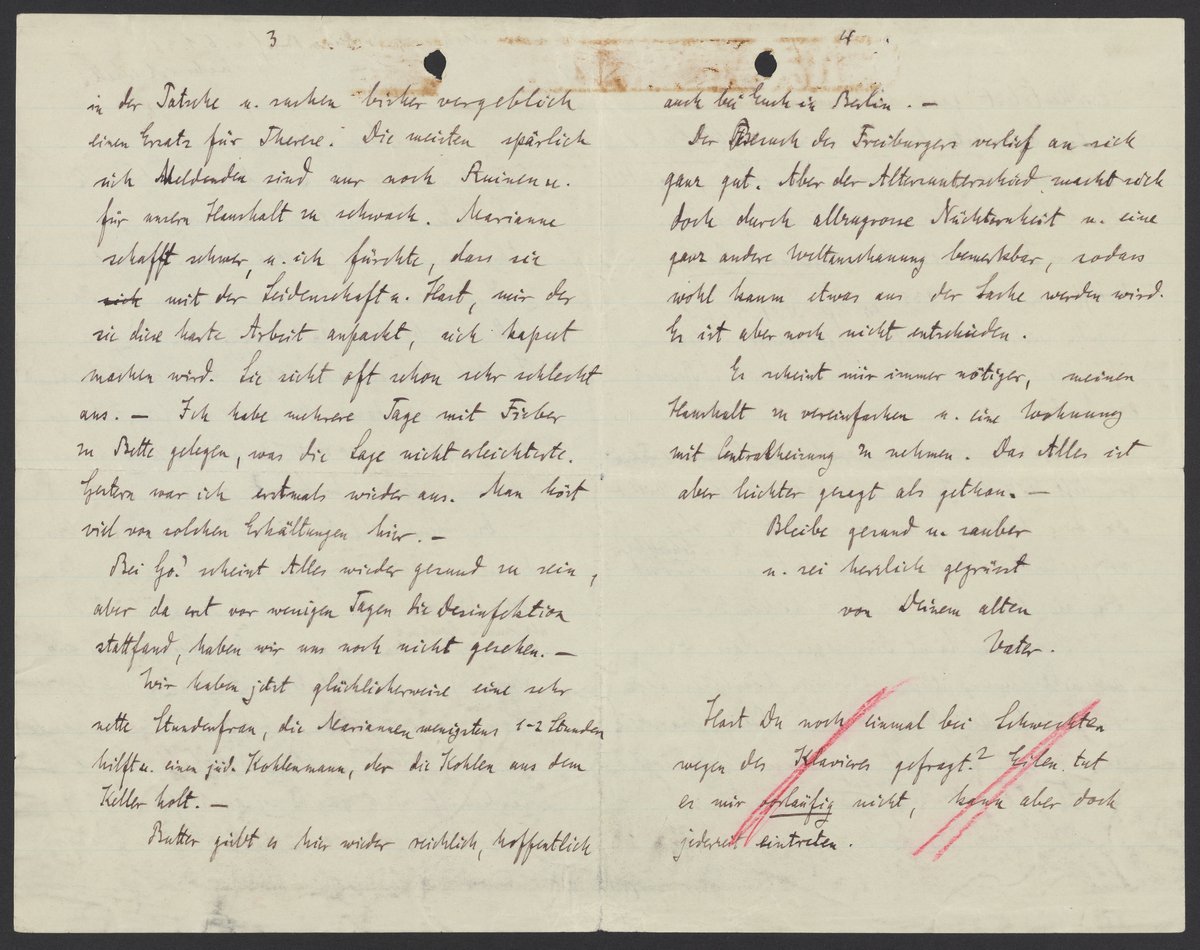 3
in der Tatsche u. suchen bisher vergeblich
einen Ersatz für Therese. Die meisten spärlich
sich Meldenden sind nur noch Ruinen u.
für unsern Haushalt zu schwach. Marianne
schafft schwer, u. ich fürchte, dass sie
mit der Leidenschaft u. Hast, mit der
sie diese harte Arbeit anpackt, sich kaput
machen wird. Sie sieht oft schon sehr schlecht
aus. — Ich habe mehrere Tage mit Fieber
zu Bette gelegen, was die Lage nicht erleichterte.
Gestern war ich erstmals wieder aus. Man hört
viel von solchen Erkältungen hier. —
Bei Go's scheint Alles wieder gesund zu sein,
aber da erst vor wenigen Tagen die Desinfektion
stattfand, haben wir uns noch nicht gesehen. —
Wir haben jetzt glücklicherweise eine sehr
nette Stundenfrau, die Mariannen wenigstens 1-2 Stunden
hilft u. einen jüd. Kohlenmann, der die Kohlen aus dem
Keller holt. —
Butter giebt es hier wieder reichlich, hoffentlich
4
auch bei Euch in Berlin. —
Der Besuch des Freiburgers verlief an sich
ganz gut. Aber der Altersunterschied macht sich
doch durch allzugrosse Nüchternheit u. eine
ganz andere Weltanschauung bemerkbar, sodass
wohl kaum etwas aus der Sache werden wird.
Es ist aber noch nicht entschieden.
Es scheint mir immer nötiger, meinen
Haushalt zu vereinfachen u. eine Wohnung
mit Centralheizung zu nehmen. Das Alles ist
aber leichter gesagt als gethan. —
Bleibe gesund u. sauber
u. sei herzlich gegrüsst
von Deinem alten
Vater.
Hast Du noch einmal bei Schwechten
wegen des Klavieres gefragt? Eilen tut
es mir vorläufig nicht, kann aber doch
jederzeit eintreten.